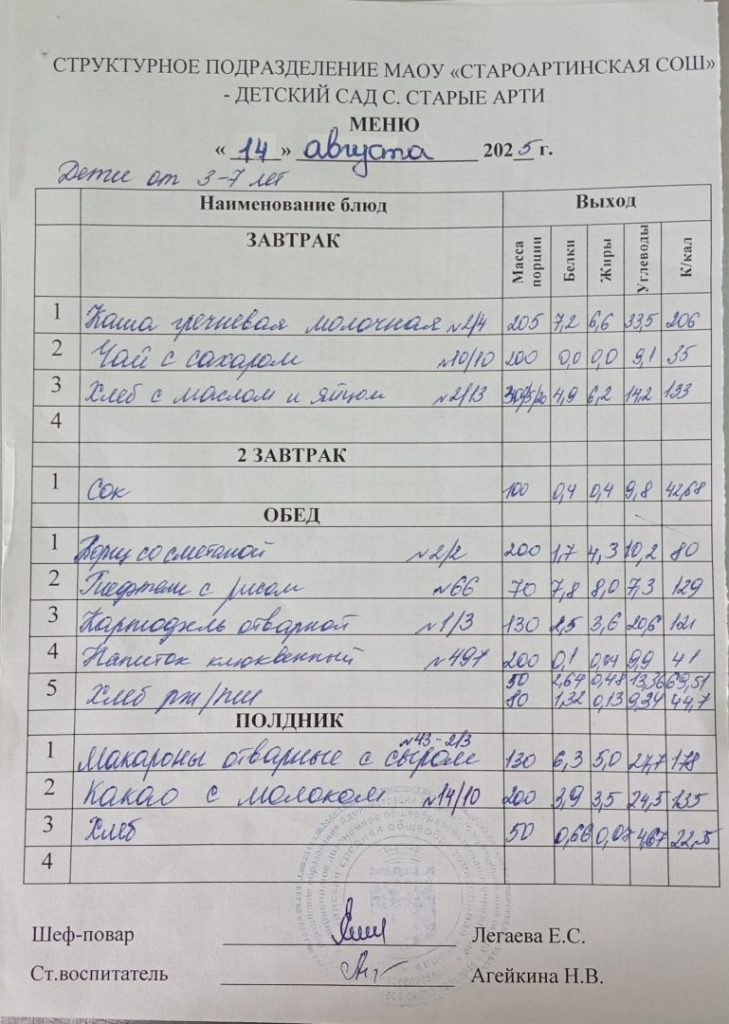 СТРУКТУРНОЕ ПОДРАЗДЕЛЕНИЕ МАОУ «СТАРОАРТИНСКАЯ СОШ»
- ДЕТСКИЙ САД С. СТАРЫЕ АРТИ
МЕНЮ
« 14 » августа 2025 г.
Дети от 3-7 лет
Наименование блюд Выход
ЗАВТРАК Масса порции Белки Жиры Углеводы К/кал
1 Каша гречневая молочная №2/4 205 7,2 6,6 33,5 206
2 Чай с сахаром №10/10 200 0,0 0,0 9,1 35
3 Хлеб с маслом и яйцом №2/13 4,9 6,2 14,2 133
4
2 ЗАВТРАК
1 Сок 100 0,4 0,4 9,8 42,68
ОБЕД
1 Борщ со сметаной №2/2 200 1,7 4,3 10,2 80
2 с рисом №66 70 7,8 8,0 7,3 129
3 Картофель отварной №1/3 130 2,5 3,6 20,6 121
4 Напиток клюквенный №497 200 0,1 0,04 9,9 41
5 Хлеб рж/пш 50 2,64 0,48 13,36 69,51
80 1,32 0,13 9,34 44,7
ПОЛДНИК
№43-2/3
1 Макароны отварные с сыром 130 6,3 5,0 27,7 178
2 Какао с молоком №14/10 200 3,9 3,5 24,5 135
3 Хлеб 50 0,66 0,07 4,67 22,35
4
Шеф-повар Легаева Е.С.
Ст.воспитатель Агейкина Н.В.